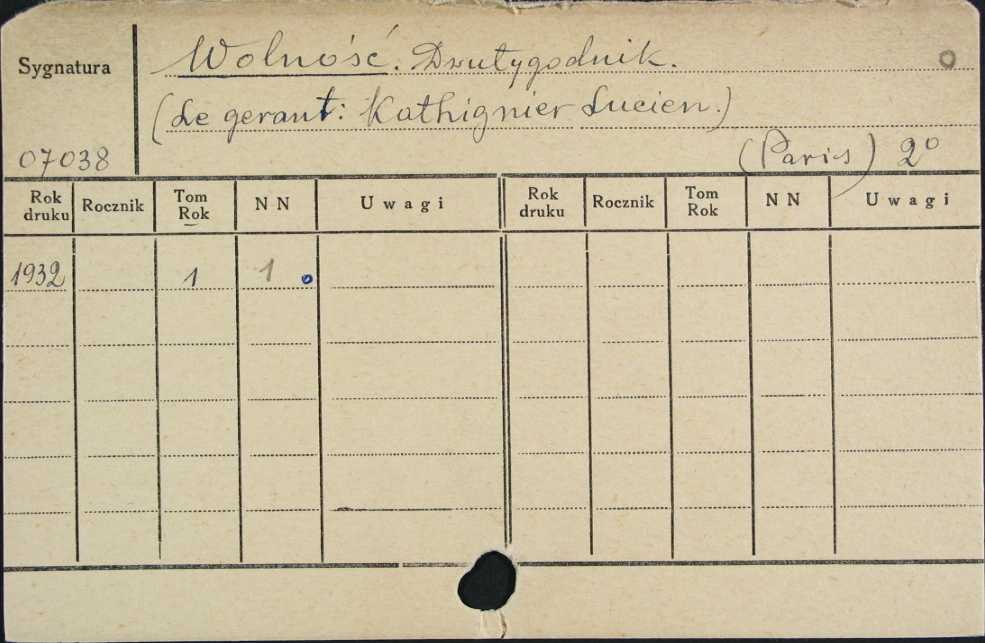 Sygnatura
Wolność. Dwutygodnik.
(Le gerant: Kathignier Lucien.)
07038
(Paris) 2°
Rok druku Rocznik Tom Rok NN Uwagi Rok druku Rocznik Tom Rok NN Uwagi
1932 1 1